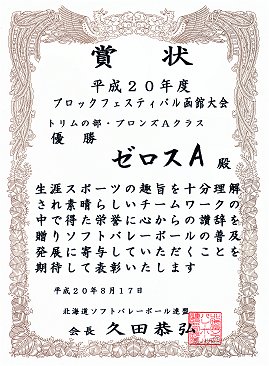 賞状
平成20年度
ブロックフェスティバル函館大会
トリムの部・ブロンズAクラス
優勝
ゼロスA 殿
生涯スポーツの趣旨を十分理解
され素晴らしいチームワークの
中で得た栄誉に心からの讃辞を
贈りソフトバレーボールの普及
発展に寄与していただくことを
期待して表彰いたします
平成20年8月17日
北海道ソフトバレーボール連盟
会長 久田恭弘